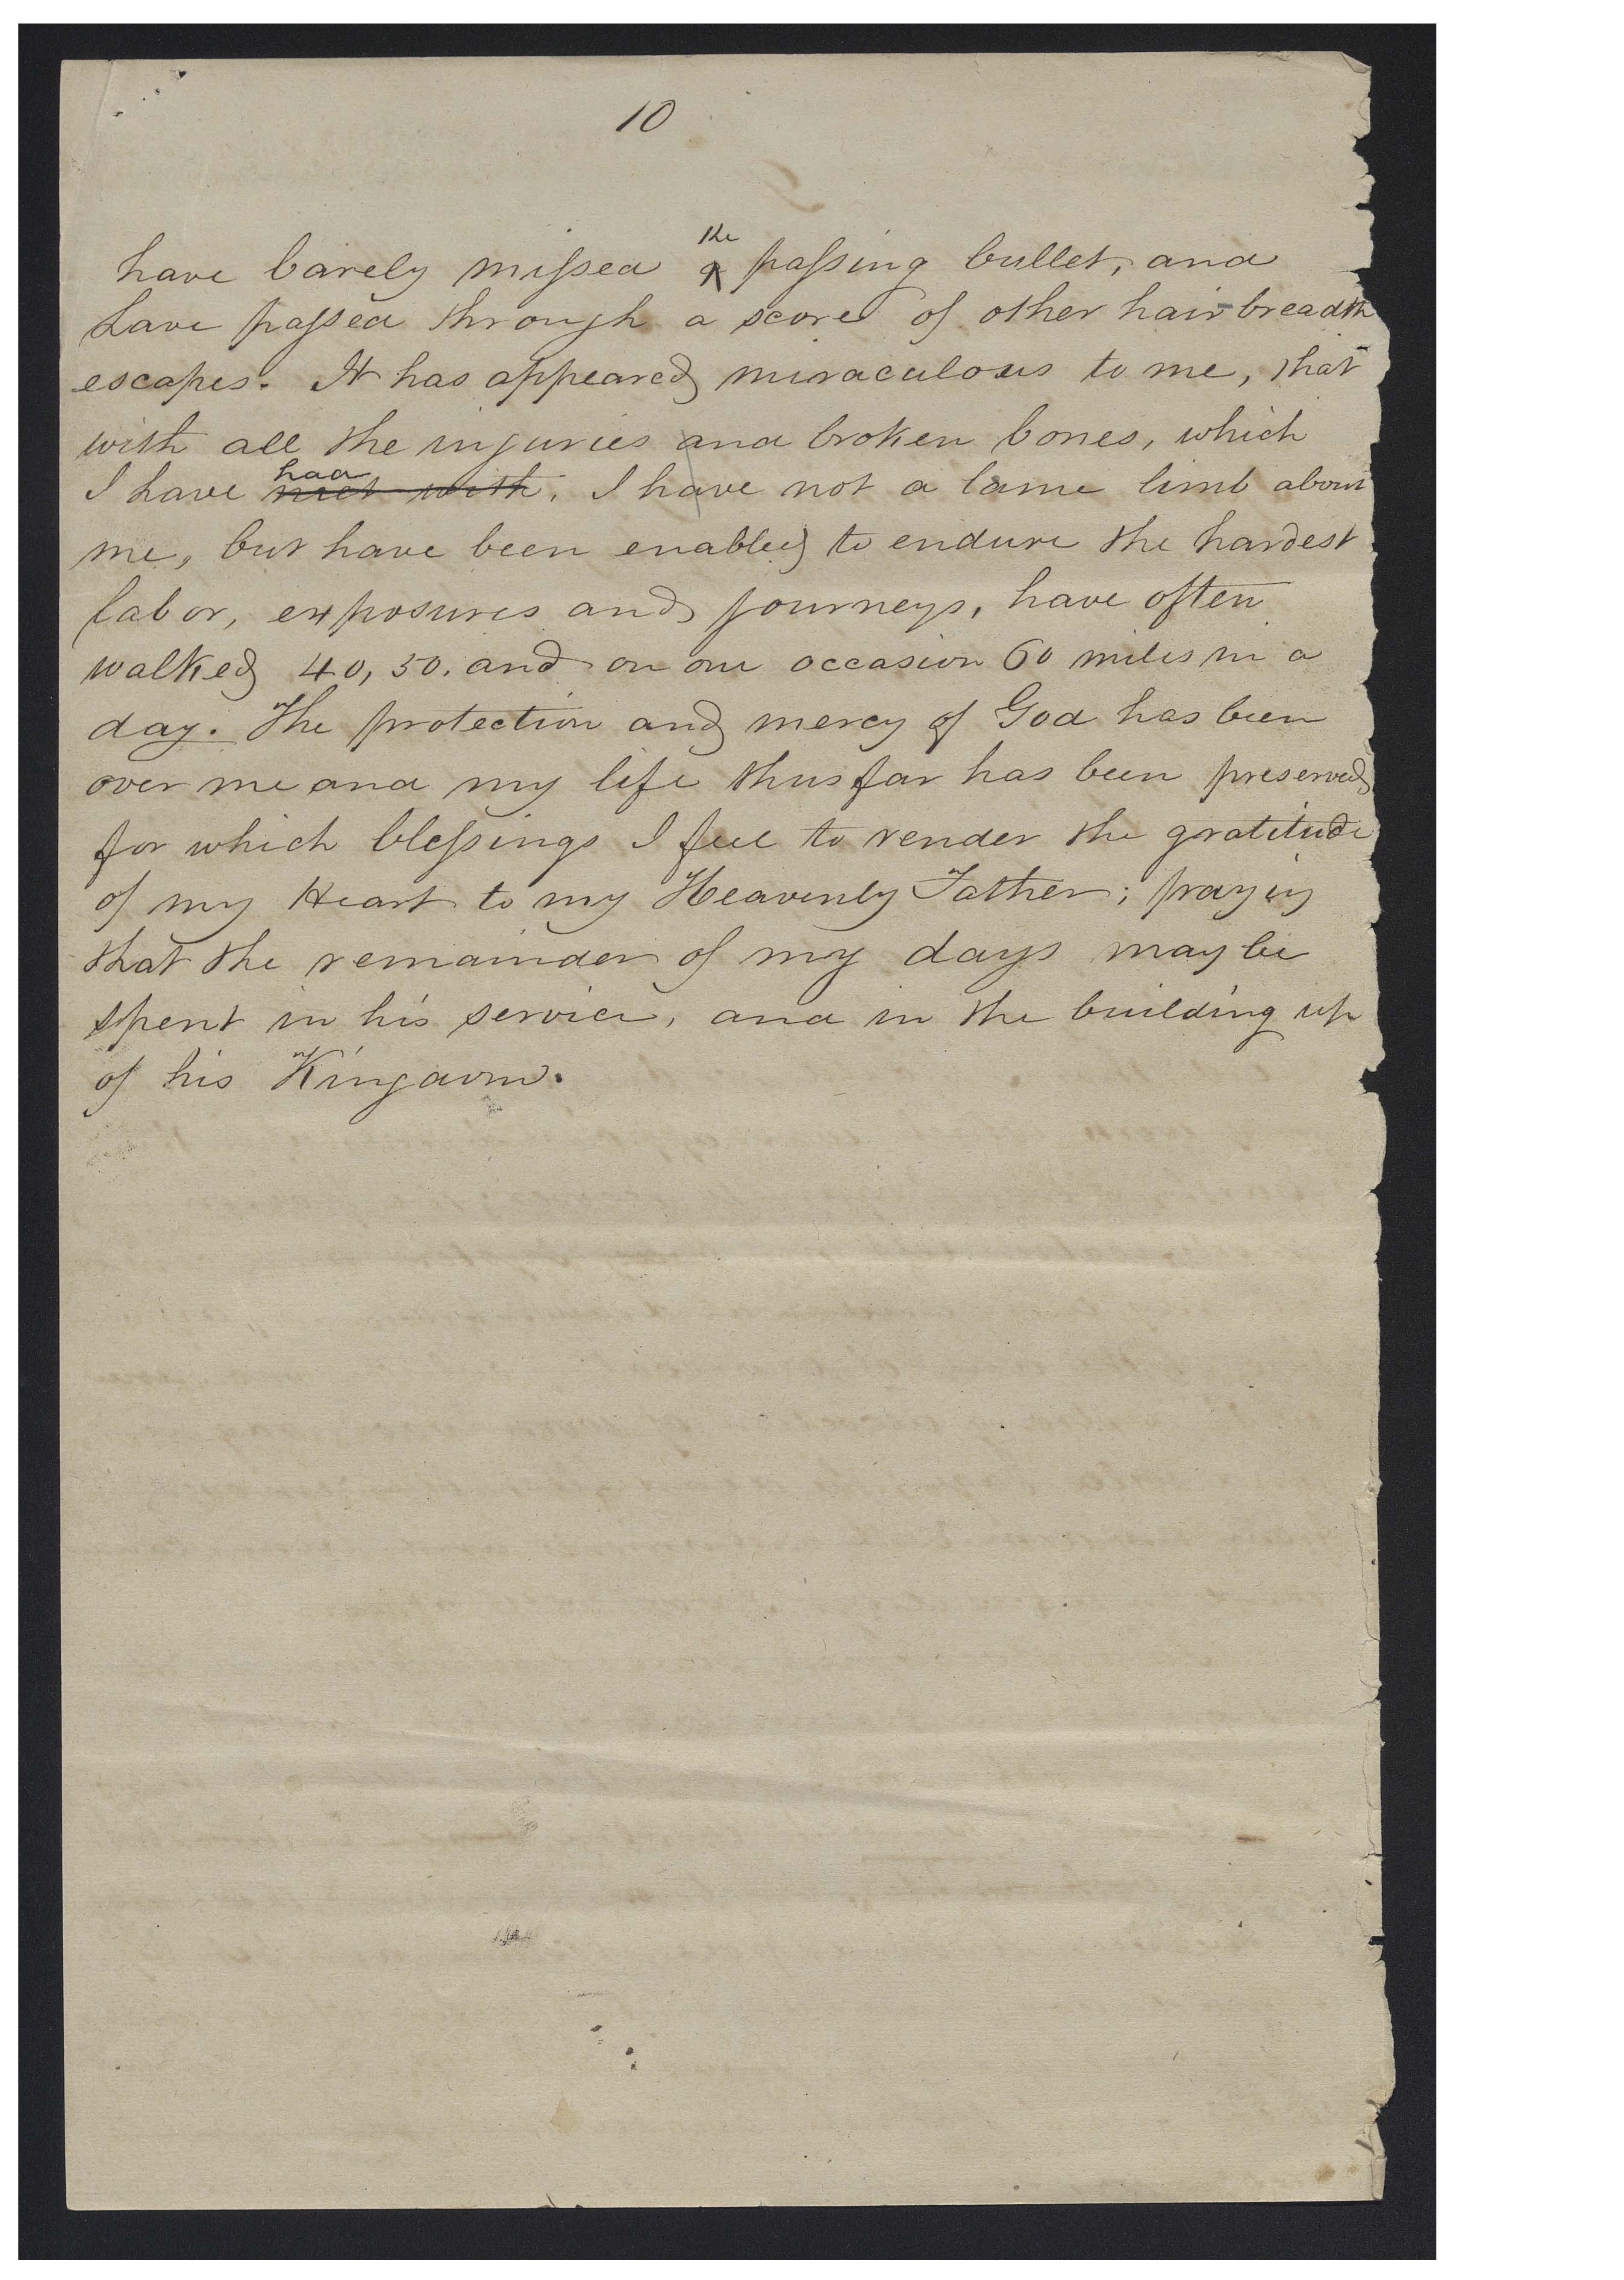 10
have barely missed the passing bullet, and
have passed through a score of other hair-breadth
escapes. It has appeared miraculous to me, that
with all the injuries and broken bones, which
I have had met with, I have not a lame limb about
me, but have been enabled to endure the hardest
labor, exposures and journeys, have often
walked 40, 50, and on one occasion 60 miles in a
day. The protection and mercy of God has been
over me and my life thus far has been preserved
for which blessings I feel to render the gratitude
of my Heart to my Heavenly Father; praying
that the remainder of my days may be
spent in his service, and in the building up
of his Kingdom.